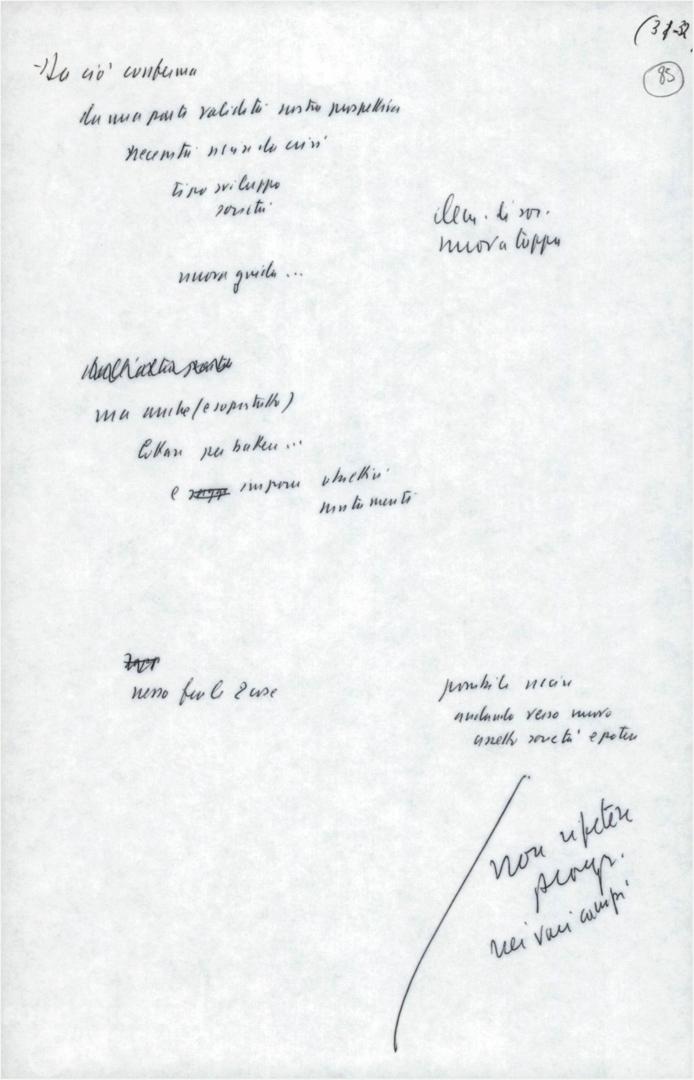 (31-32
85
- Da ciò conferma
da una parte validità nostra prospettiva
necessità uscire da crisi
tipo sviluppo
società
elem. di soc.
nuova tappa
nuova guida ...
dall'altra parte
ma anche (e soprattutto)
lottare per battere ...
e imporre obiettivi
mutamenti
nesso fra le 2 cose
possibile uscire
andando verso nuovo
assetto società e potere
non ripetere
progr.
nei vari campi